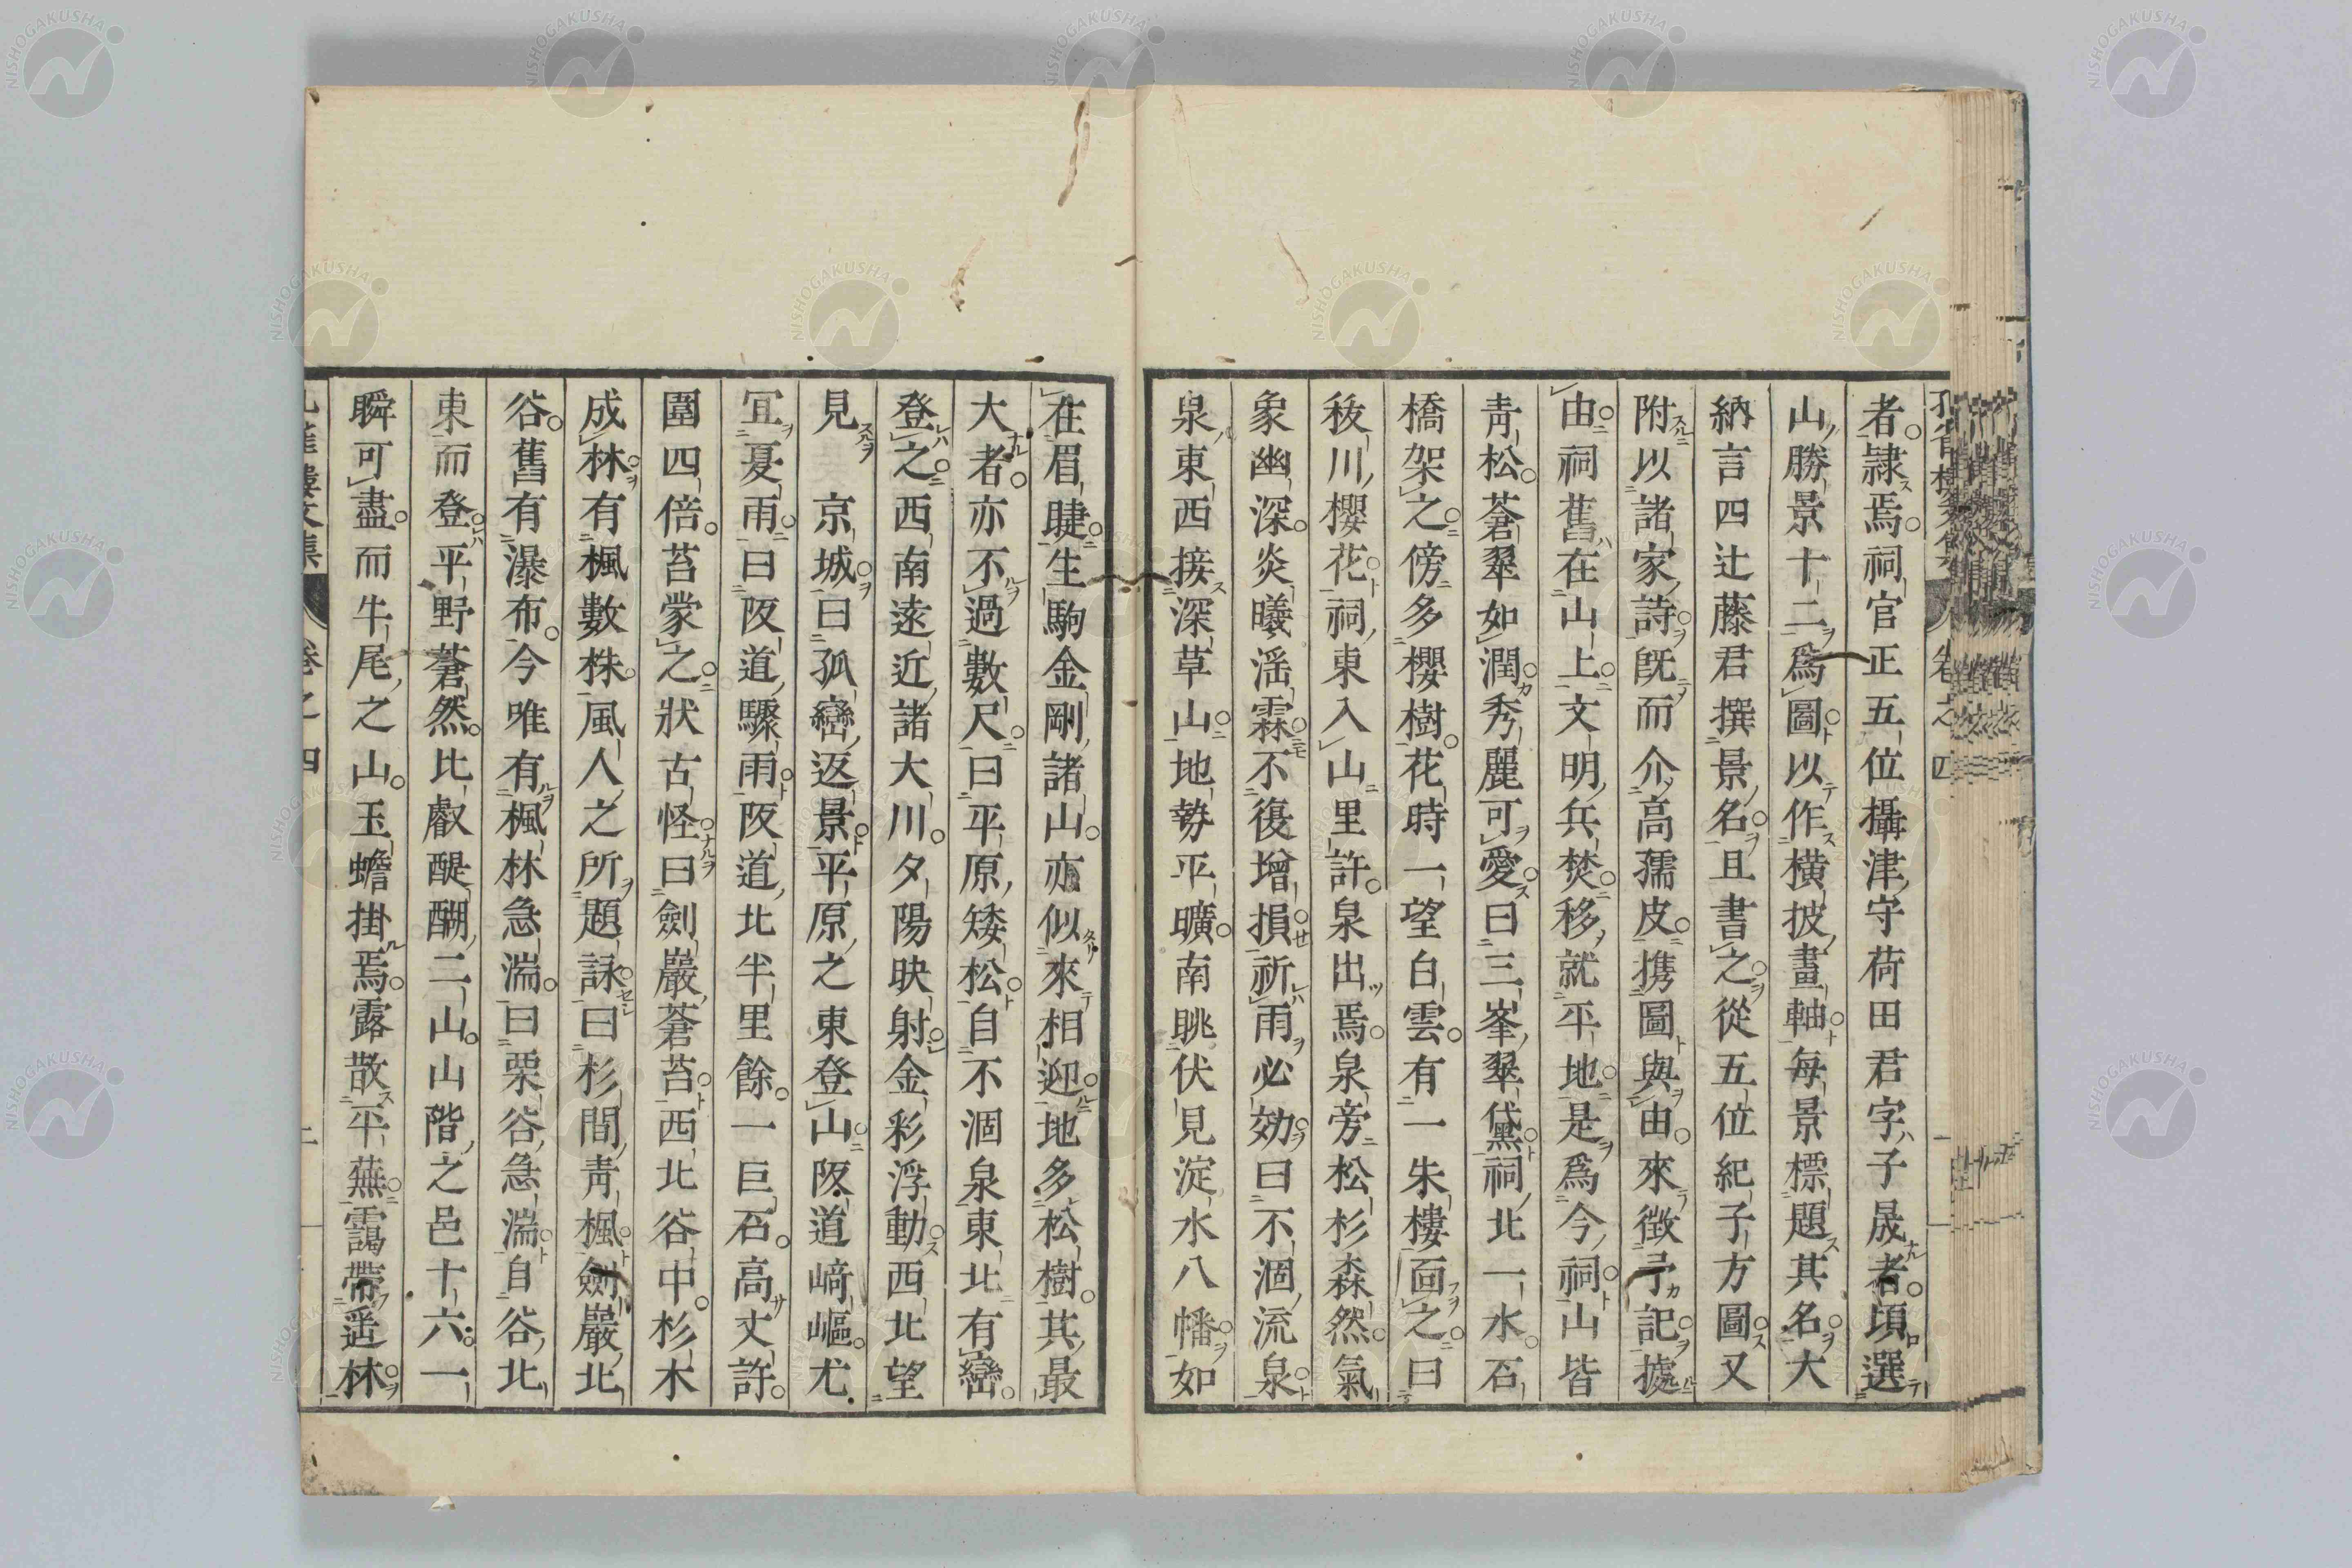 者隷焉祠官正五位攝津守荷田君字子晟者頃選
山勝景十二爲圖以作横披畫軸每景標題其名大
納言四辻藤君撰景名且書之從五位紀子方圖又
附以諸家詩既而介高孺皮携圖與由來徴予記據
由祠舊在山上文明兵焚移就平地是爲今祠山皆
靑松蒼翠如潤秀麗可愛曰三峯翠黛祠北一水石
橋架之傍多櫻樹花時一望白雲有一朱樓面之曰
秡川櫻花祠東入山里許泉出焉泉旁松杉森然氣
象幽深炎曦滛霖不復增損祈雨必効曰不涸流泉
泉東西接深草山地勢平曠南眺伏見淀水八幡如
在眉睫生駒金剛諸山亦似來相迎地多松樹其最
大者亦不過數尺曰平原矮松自不涸泉東北有巒
登之西南遠近諸大川夕陽映射金彩浮動西北望
見京城曰孤巒返景平原之東登山阪道﨑嶇尤
宜憂雨曰阪道驟雨阪道北半里餘一巨石高丈許
圍四倍苔蒙之狀古怪曰劍巖蒼苔西北谷中杉木
成林有楓數株風人之所題詠曰杉間靑楓劍巖北
谷舊有瀑布今唯有楓林急湍曰栗谷急湍自谷北
東而登平野蒼然比叡醍醐二山山階之邑十六一
瞬可盡而牛尾之山玉蟾掛焉露散平蕪靄帶遥林
卷之四